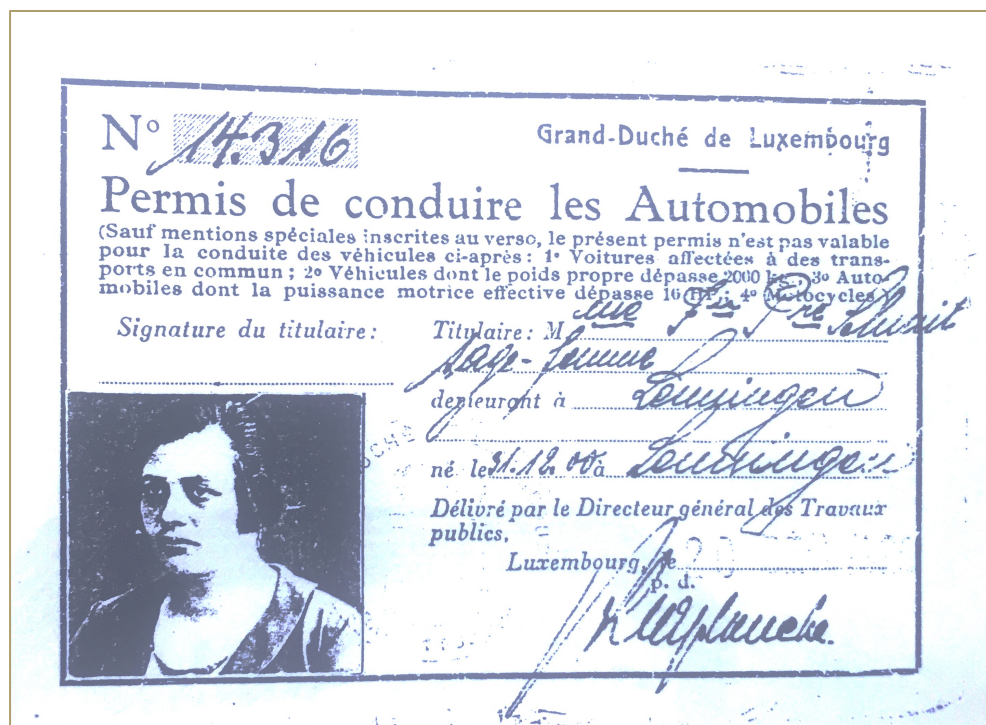 Nº 14.316
Grand-Duché de Luxembourg
Permis de conduire les Automobiles
(Sauf mentions spéciales inscrites au verso, le présent permis n'est pas valable
pour la conduite des véhicules ci-après : 1º Voitures affectées à des trans-
ports en commun ; 2º Véhicules dont le poids propre dépasse 2000 kg. ; 3º Auto-
mobiles dont la puissance motrice effective dépasse 16 HP. ; 4º Motocycles.)
Signature du titulaire :
Titulaire : Mme
sage-femme
demeurant à Lenningen
né le 31.12.00 à Lenningen
Délivré par le Directeur général des Travaux
publics,
Luxembourg, le 20
p. d.